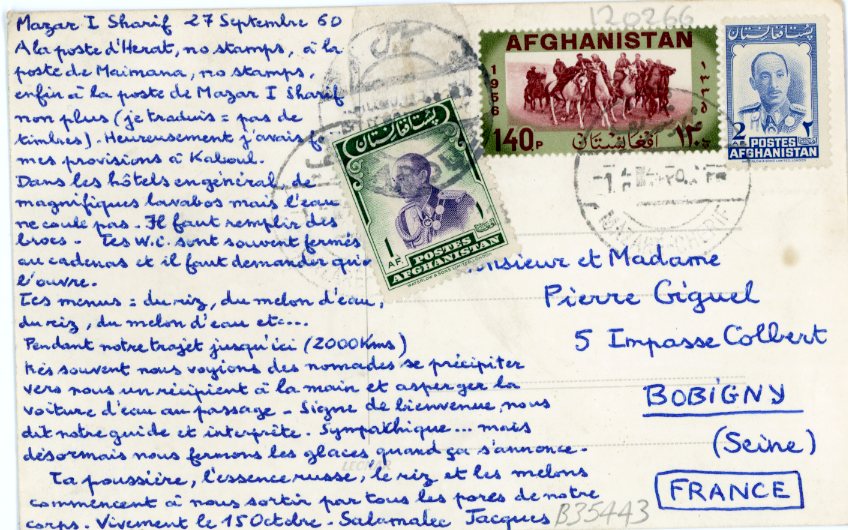 Mazar I Sharif 27 Septembre 60
A la poste d'Herat, no stamps, à la
poste de Maimana, no stamps,
enfin à la poste de Mazar I Sharif
non plus (je traduis = pas de
timbres). Heureusement j'avais f
mes provisions à Kaboul.
Dans les hôtels en général de
magnifiques lavabos mais l'eau
ne coule pas. Il faut remplir des
brocs. Les W.C. sont souvent fermés
au cadenas et il faut demander qu'o
l'ouvre.
Les menus = du riz, du melon d'eau,
du riz, du melon d'eau etc...
Pendant notre trajet jusqu'ici (2000 Kms)
très souvent nous voyions des nomades se précipiter
vers nous un récipient à la main et asperger la
voiture d'eau au passage - Signe de bienvenue, nous
dit notre guide et interprète. Sympathique... mais
désormais nous fermons les glaces quand ça s'annonce.
La poussière, l'essence russe, le riz et les melons
commencent à nous sortir par tous les pores de notre
corps. Vivement le 15 Octobre. Salamalec Jacques
B35443
120266
AFGHANISTAN
1956
١٣٣٥
140 P
افغانستان
١٤٠
پست افغانستان
2
٢
POSTES
AFGHANISTAN
پست افغانستان
1
AF.
١
POSTES
AFGHANISTAN
onsieur et Madame
Pierre Giguel
5 Impasse Colbert
BOBIGNY
(Seine)
FRANCE